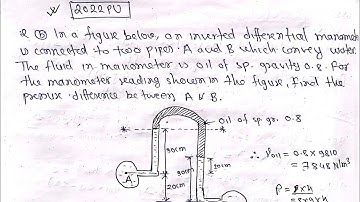 2022 PU
Q (b) In a figure below, an inverted differential manomete
is connected to two pipes A and B which convey water.
The fluid in manometer is oil of sp. gravity 0.8. For
the manometer reading shown in the figure, find the
pressure difference between A & B.
oil of sp. gr. 0.8
∴ γoil = 0.8×9810
= 7848 N/m³
30cm
20cm
20cm
A
P = γ×h